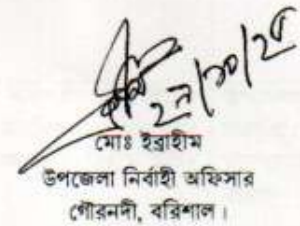 ২৭/১০/২৫
মোঃ ইব্রাহীম
উপজেলা নির্বাহী অফিসার
গৌরনদী, বরিশাল।